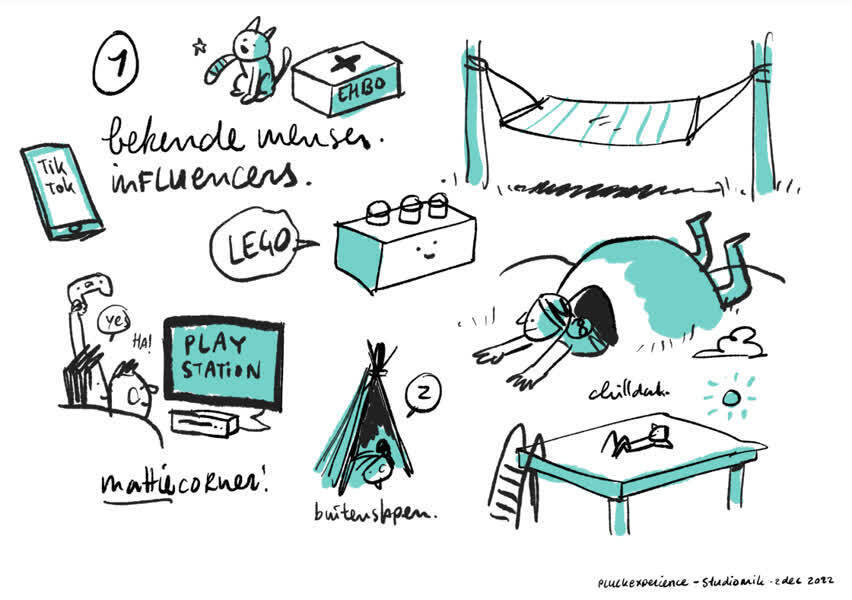 1
EHBO
bekende mensen.
INFLUENCERS.
Tik
Tok
LEGO
yes
HA!
PLAY
STATION
z
chilldak.
mattiecorner!
buitenslapen.
PLUCKEXPERIENCE - Studiomik - 2 dec 2022